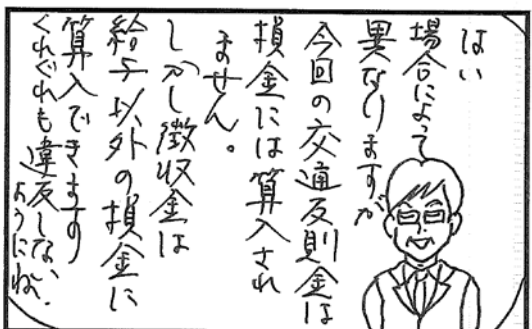 はい
場合によって
異なりますが
今回の交通反則金は
損金には算入され
ません。
しかし徴収金は
給与以外の損金に
算入できます
くれぐれも違反しない
ようにね。